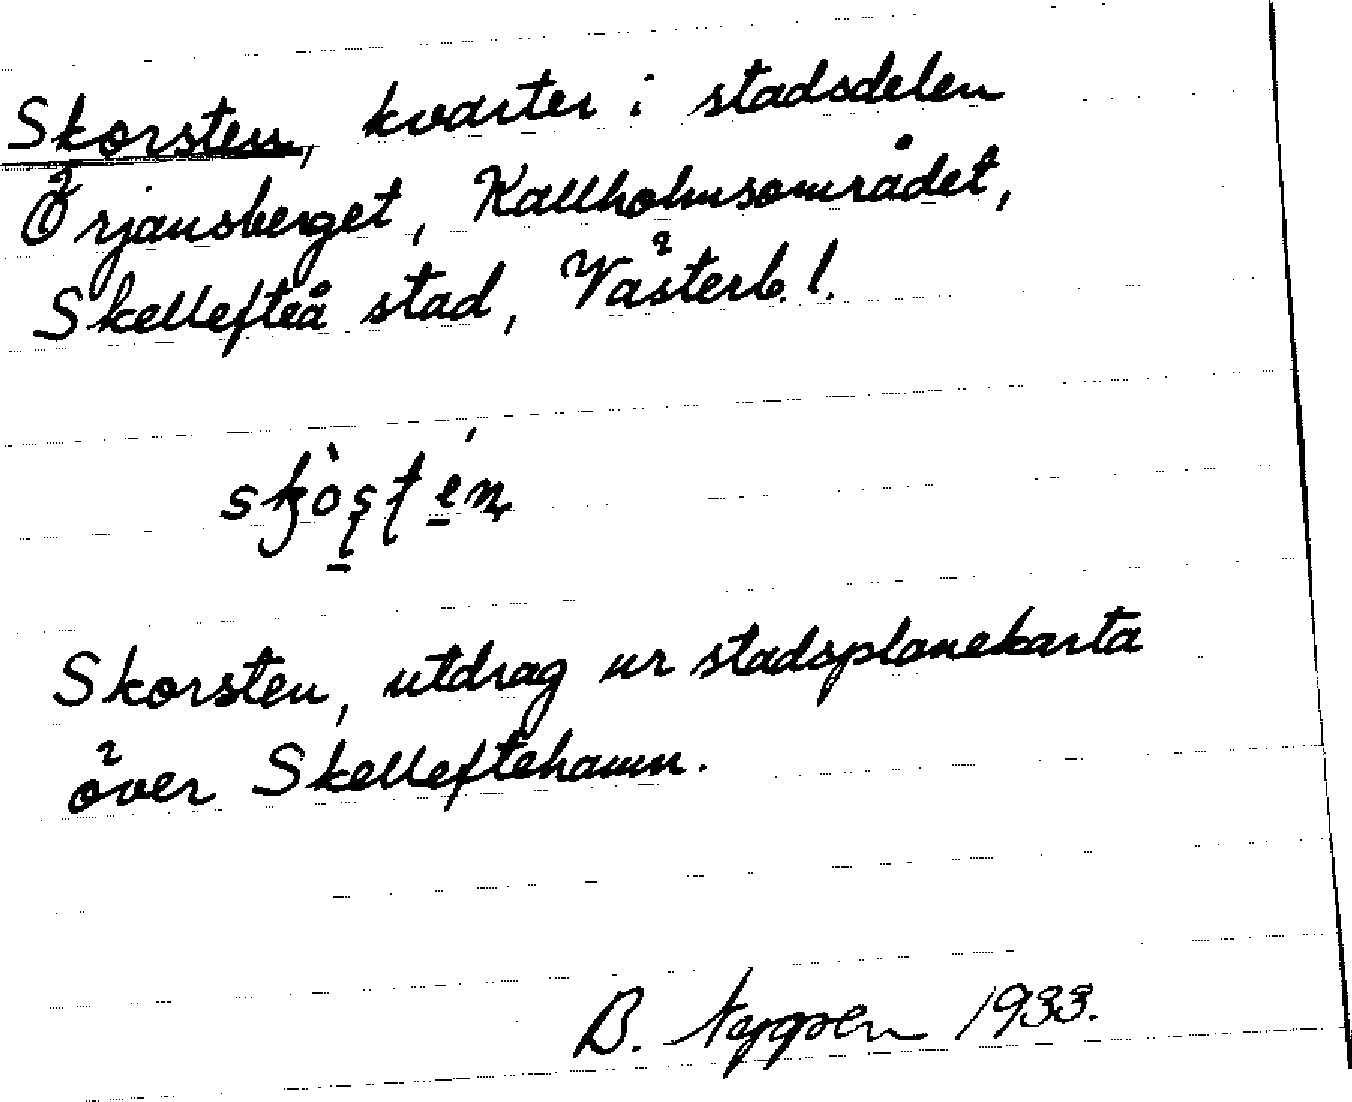 Skorsten, kvarter i stadsdelen
Örjansberget, Kallholmsområdet,
Skellefteå stad, Västerb. l.
Skorsten, utdrag ur stadsplanekarta
över Skelleftehamn.
B. 1933.